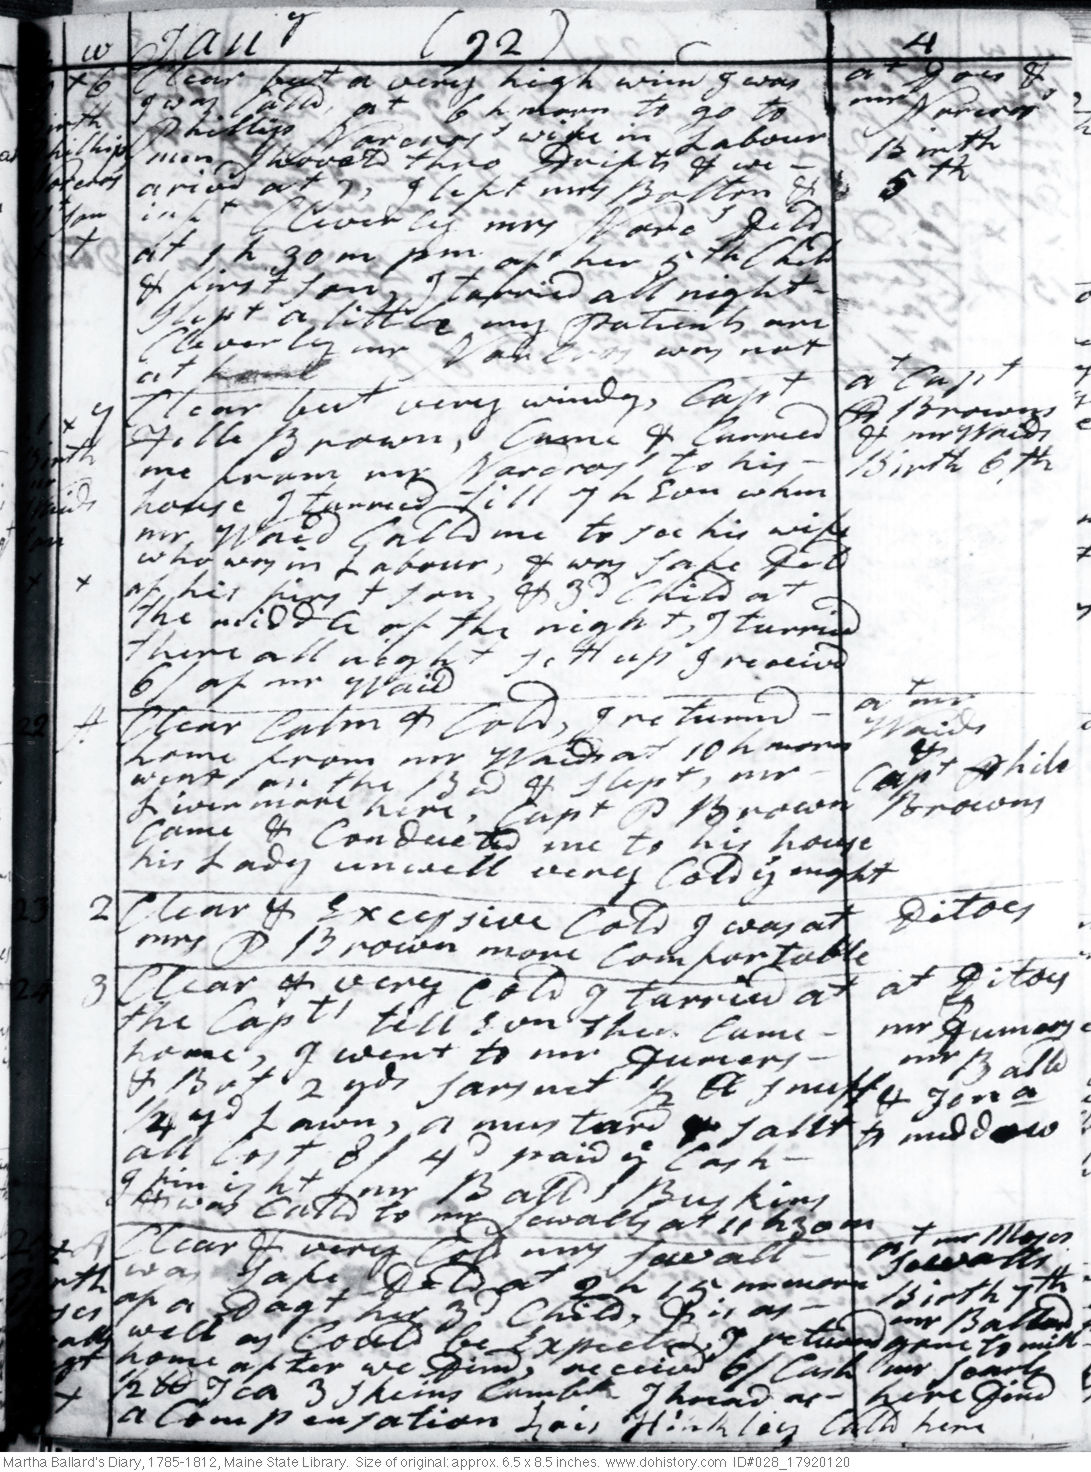 w Jany (92) 4
x 6 Clear but a very high wind I was
I was Calld at 6 h morn to go to
Phillip Norcros' wife in Labour
men Shoveld thro Drifts & we
arivd at 7, I left mrs Bolton &
inft Cleverly mrs Norc's Deld
at 1 h 30 m pm of her 5th Child
& first son, I tarried all night
Slept a little my patients are
Cleverly mr Norcros was not
at home
at Joies &
mr Norcros'
Birth
5th
x 7 Clear but very windy, Capt
Fille Brown, Came & Carried
me from mr Norcros' to his
house I tarried till 7 h Evn when
mr Waid Calld me to see his wife
who was in Labour, & was safe Deld
of his first son, & 3d Child at
the middle of the night, I tarried
there all night sett up I received
6/ of mr Waid
at Capt
P Browns
& mr Waids
Birth 6th
22 A Clear Calm & Cold, I returnd
home from mr Waids at 10 h morn
went on the Bed & slept, mr
Livermore here, Capt P Brown
Came & Conducted me to his house
his Lady unwell very Cold ys night
at mr
Waids
&
Capt Phile
Browns
23 2 Clear & Excessive Cold I was at
mrs P Brown more Comfortable
Ditoes
24 3 Clear & very Cold I tarried at
the Capts till Evn then Came
home, I went to mr Dumers
& Bot 2 yds sarsnet ½ lb snuff
¼ yd Lawn, a mustard & sallt
all Cost 8/ 4d paid ys Cash
I finisht mr Balld's Buskins
& was Calld to mr Sewalls at 11 h 30 m
at Ditoes
&
mr Dumers
mr Balld
& Jona
to meddow
Clear & very Cold mrs Sewall
was safe Deld at 2 h 15 m morn
of a Dagt her 3d Child, & is as
well as Could be Expected, I returnd
home after we Dind, received 6/ Cash
½ lb Tea 3 Skeins Cambk Thread as
a Compensation Lois Hinkley Calld here
at mr Moses
Sewalls
Birth 7th
mr Ballard
gone to mill
mr Searls
here Dind
Martha Ballard's Diary, 1785-1812, Maine State Library. Size of original: approx. 6.5 x 8.5 inches. www.dohistory.com ID#028_17920120